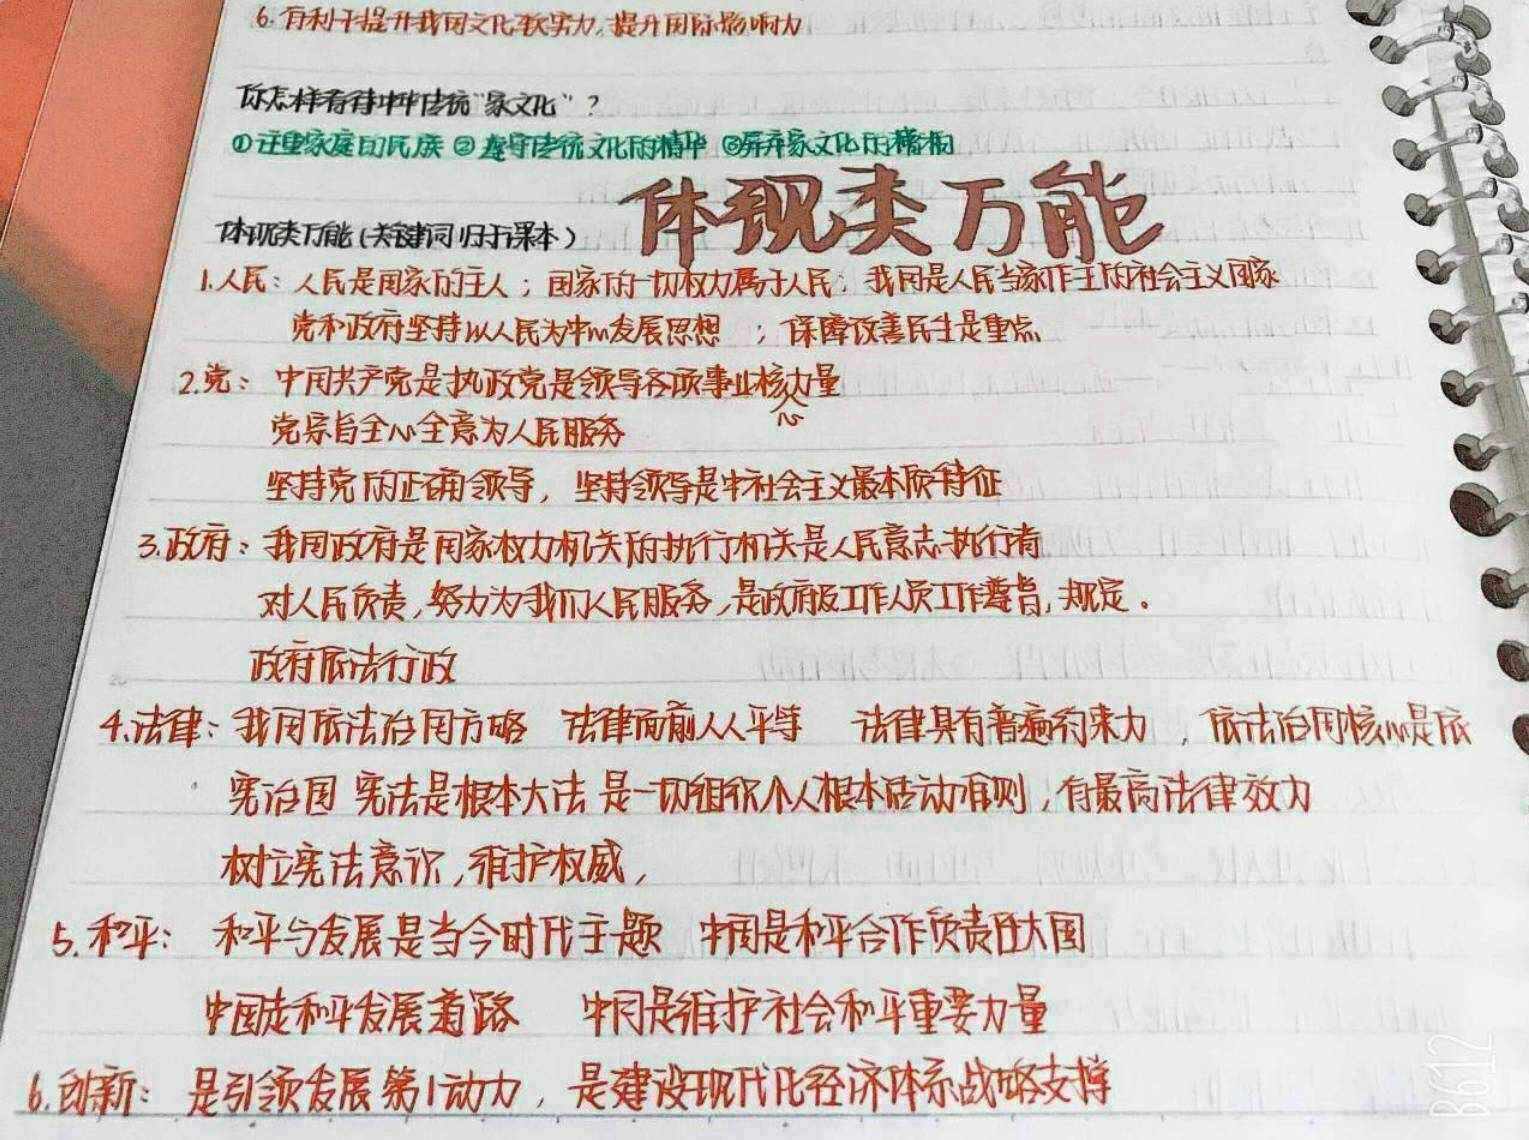 6.有利于提升我国文化软实力,提升国际影响力
你怎样看待中华传统“家文化”?
①注重家庭的民族 ②遵导传统文化的精华 ③屏弃家文化的糟粕
体现类万能
体现类万能(关键词归于课本)
1.人民: 人民是国家的主人; 国家的一切权力属于人民; 我国是人民当家作主的社会主义国家
党和政府坚持以人民为中心发展思想 ; 保障改善民生是重点
2.党: 中国共产党是执政党是领导各项事业核心力量
党宗旨全心全意为人民服务
坚持党的正确领导, 坚持领导是中社会主义最本质特征
3.政府: 我国政府是国家权力机关的执行机关是人民意志执行者
对人民负责,努力为我们人民服务,是政府及工作人员工作尊旨,规定。
政府依法行政
4.法律: 我国依法治国方略 法律面前人人平等 法律具有普遍约束力 , 依法治国核心是依
宪治国 宪法是根本大法 是一切组织个人根本活动准则,有最高法律效力
树立宪法意识,维护权威,
5.和平: 和平与发展是当今时代主题 中国是和平合作负责任大国
中国走和平发展道路 中国是维护社会和平重要力量
6.创新: 是引领发展第1动力, 是建设现代化经济体系战略支撑
B612